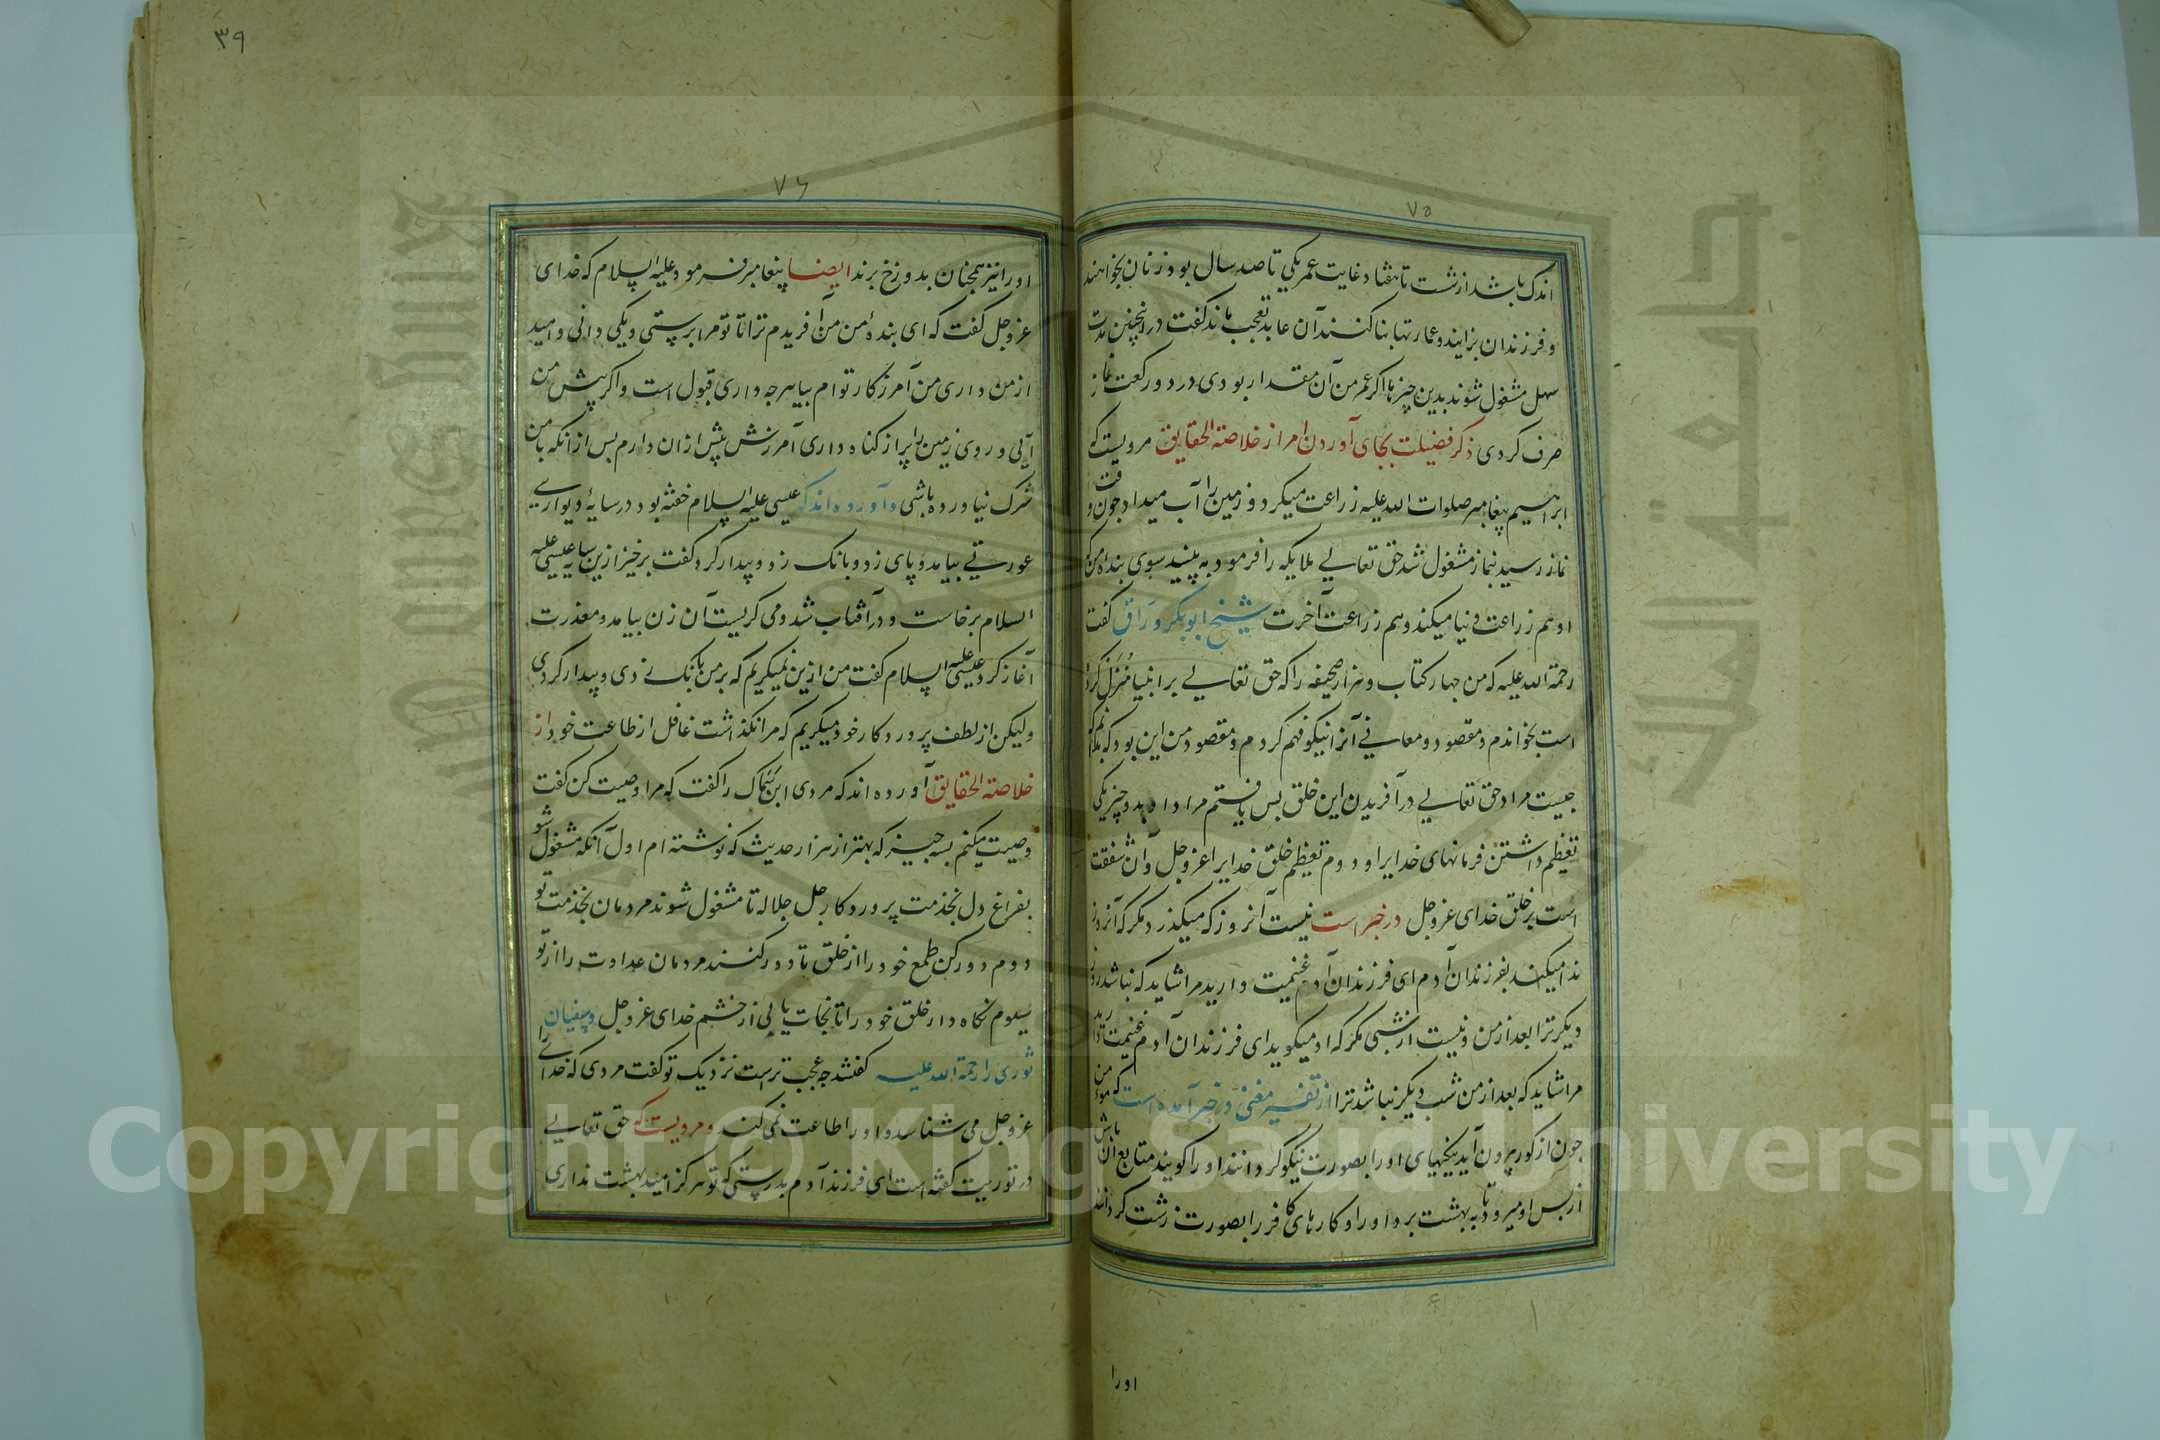 ۷۵
اندک باشد از شست تا هفتاد غایت عمر یکی تا صد سال بود زنان بخواهند
و فرزندان بزایند و عمارتها بنا کنند آن عابد تعجب بماند گفت در اینچنین مدت
سهل مشغول شوند بدین چیزها اکر عمر من آن مقدار بودی در دو رکعت نماز
صرف کردی ذکر فضیلت بجای آوردن امر از خلاصة الحقایق مرویست که
ابراهیم پیغامبر صلوات الله علیه زراعت میکرد و زمین را آب میداد جون وقت
نماز رسید بنماز مشغول شد حق تعالی ملایکه را فرمود به بینید سوی بنده من که
او هم زراعت دنیا میکند و هم زراعت آخرت شیخ ابوبکر وراق گفت
رحمة الله علیه که من جهار کتاب و هزار صحیفه را که حق تعالی بر انبیا منزل کرده
است بخواندم و مقصود و معانی آنرا نیکو فهم کردم و مقصود من این بود که بدانم که
جیست مراد حق تعالی در آفریدن این خلق بس یافتم مراد او بدو چیز یکی
تعظیم داشتن فرمانهای خدایرا و دوم تعظیم خلق خدایرا عزوجل و آن شفقت
است بر خلق خدای عزوجل در خبر است نیست آنروز که میکذرد مکر که آنروز
ندا میکند بفرزندان آدم ای فرزندان آدم غنیمت دارید مرا شاید که نباشد روز
دیکر ترا بعد از من و نیست از شبی مکر که او میکوید ای فرزندان آدم غنیمت دارید
مرا شاید که بعد از من شب دیکر نباشد ترا از تفسیر مغنی در خبر آمده است که مومن
جون از کور بیرون آید نیکیهای او را بصورت نیکو کردانند او را کویند متابع آن باش
از بس او میرود تا به بهشت برد او را و کارهای کافر را بصورت زشت کردانند
اورا
۳۹
۷۶
او را نیز همچنان بدوزخ برند ایضا پیغامبر فرمود علیه السلام که خدای
عزوجل گفت که ای بنده من من آفریدم ترا تا تو مرا برستی و یکی دانی و امید
از من داری من آمرزکار توام بیا هرجه داری قبول است و اکر پیش من
آیی و روی زمین را پر از کناه داری آمرزش بیش از ان دارم بس از انکه با من
شرک نیاورده باشی و آورده اند که عیسی علیه السلام خفته بود در سایهٔ دیواری
عورتی بیامد و پای زد و بانک زد و بیدار کرد گفت برخیز ازین سایه عیسی علیه
السلام برخاست و در آفتاب شد و می کریست آن زن بیامد و معذرت
آغاز کرد عیسی علیه السلام گفت من ازین نمیکریم که بر من بانک زدی و بیدار کردی
ولیکن از لطف پروردکار خود میکریم که مرا نکذاشت غافل از طاعت خود از
خلاصة الحقایق آورده اند که مردی ابن سماک را گفت که مرا وصیت کن گفت
وصیت میکنم بسه جیز که بهتر از هزار حدیث که نوشته ام اول آنکه مشغول شو
بفراغ دل بخدمت پروردکار جل جلاله تا مشغول شوند مردمان بخدمت تو
دوم دور کن طمع خود را از خلق تا دور کنند مردمان عداوت را از تو
سیوم نکاه دار خلق خود را تا نجات یابی از خشم خدای عزوجل و سفیان
ثوری را رحمة الله علیه گفتند جه عجب تر است نزدیک تو گفت مردی که خدای را
عزوجل می شناسد و او را طاعت نمی کند و مرویست که حق تعالی
در توریت گفته است ای فرزند آدم بدرستی که تو هرکز امید بهشت نداری
Copyright © King Saud University